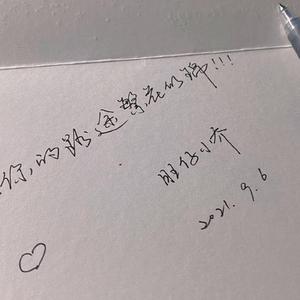 你的路途繁花似锦!!!
旺仔小乔
2021.9.6